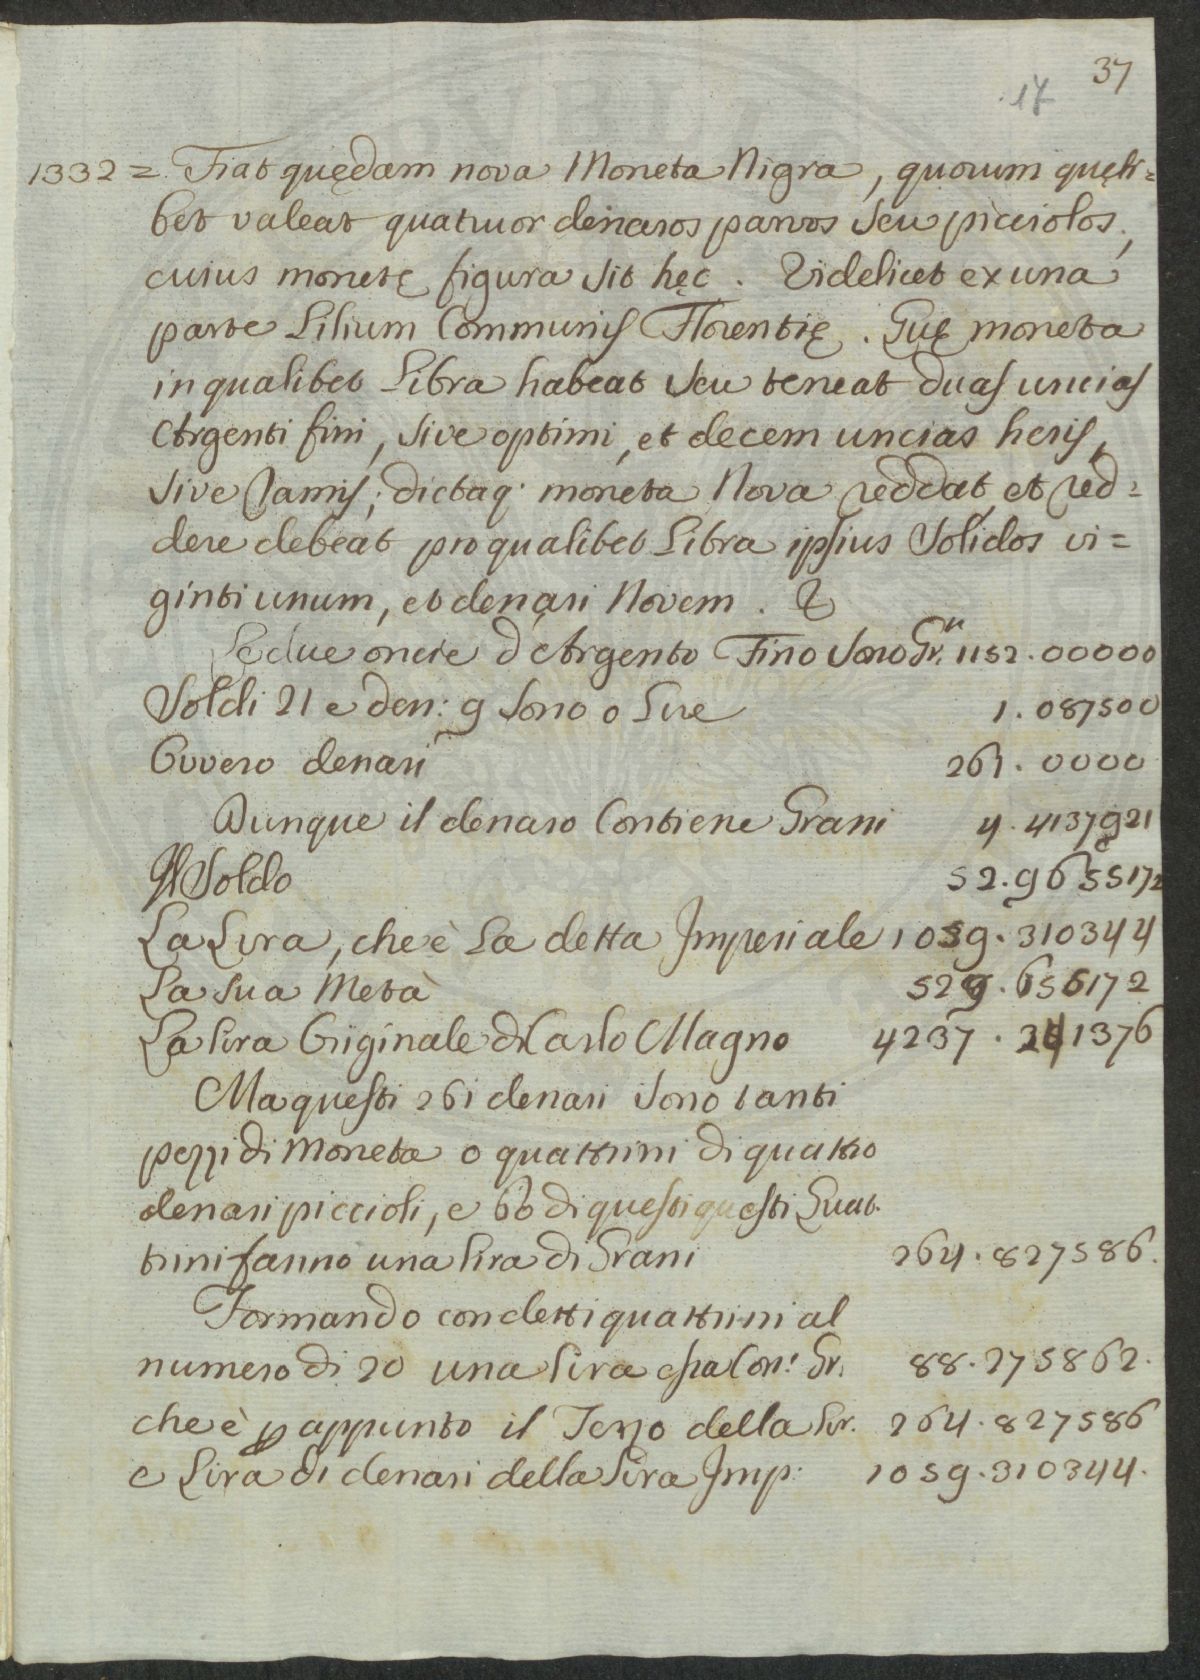 37
17
1332 = Fiat quędam nova Moneta Nigra, quorum quęli=
bet valeat quatuor denaros parvos seu picciolos;
cuius monetę figura sit hęc. Videlicet ex una
parte Lilium Communis Florentię. Quę moneta
in qualibet Libra habeat seu teneat duas uncias
Argenti fini, sive optimi, et decem uncias heris,
sive Ramis; dictaq. moneta Nova reddat, et red=
dere debeat pro qualibet Libra ipsius Solidos vi=
ginti unum, et denari Novem. &
Le due oncie d'Argento Fino sono Gr. 1152.00000
Soldi 21 e den: 9 sono o Lire 1.087500
Ovvero denari 261.0000
Dunque il denaro Contiene Grani 4.4137921
Il Soldo 52.9655172
La Lira, che è La detta Imperiale 1059.310344
La sua Metà 529.656172
La lira Originale di Carlo Magno 4237.241376
Ma questi 261 denari sono tanti
pezzi di Moneta o quattrini di quattro
denari piccioli, e 60 di questi questi Quat.
trini fanno una lira di Grani 264.827586.
Formando con detti quattrini al
numero di 20 una lira essa Con: Gr. 88.275862.
che è p appunto il Terzo della Lir. 264.827586
e Lira di denari della Lira Imp: 1059.310344.